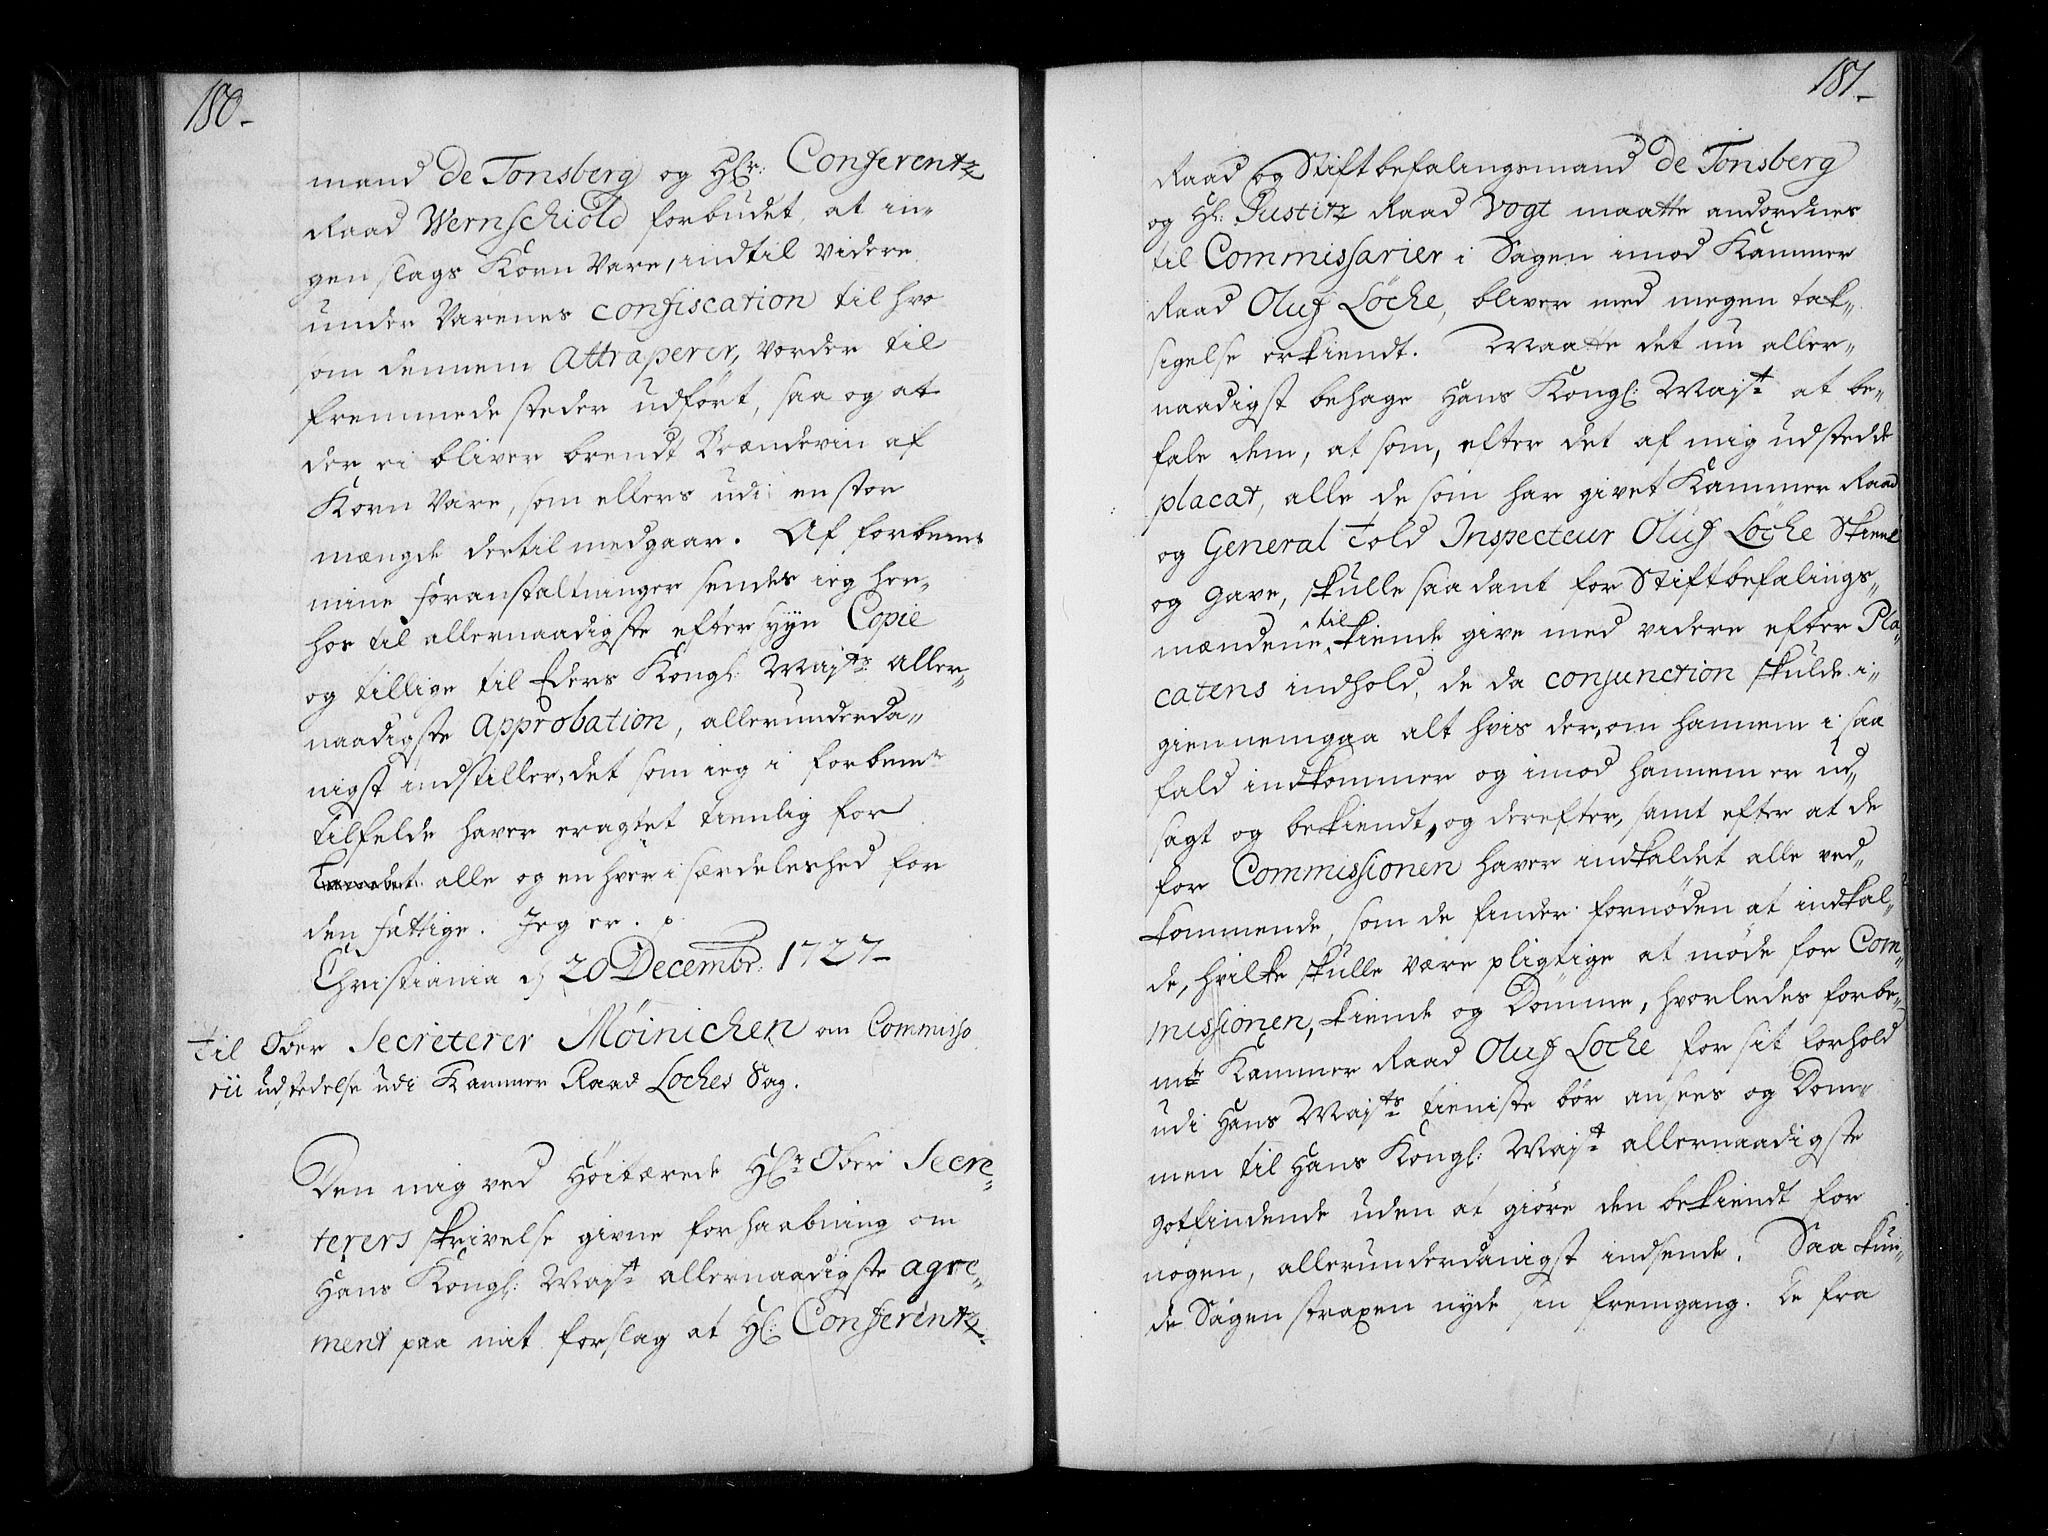 180.
mand de Tonsberg og Hr: Conferentz
Raad Wernschiold forbudet, at in„
gen slags Korn Vare, indtil videre
under Varenes confiscation til hvo
som dennem Attraperer, vorder til
fremmede steder udført, saa og at
der ei bliver brendt Brændevin af
Korn Vare, som ellers udi en stor
mængde dertil medgaar. Af forbem:te
mine foranstaltninger sendes ieg her„
hos til allernaadigste efter syn Copie
og tillige til Eders Kongl: Maj:ts aller„
naadigste Approbation, allerunderda„
nigst indstiller, det som ieg i forbem:te
tilfelde haver eragtet tienlig for
alle og en hver i særdeleshed for
den fattige. Jeg er. p.
Christiania d. 20 Decembr: 1727
Til Over Secreterer Møinichen om Commisso
rii udstedelse udi Kammer Raad Løches Sag.
Den mig ved Høitærede Hr: Over Secre„
terers skrivelse givne forhaabning om
Hans Kongl: Maj:t allernaadigste agre„
ment paa mit forslag at Hr: Conferentz
181.
Raad og Stiftbefalingsmand de Tonsberg
og Hr: Justitz Raad Vogt maatte andordnes
til Commissarier i Sagen imod Kammer
Raad Oluf Löche, bliver med megen tak„
sigelse erkiendt. Maatte det nu aller„
naadigst behage Hans Kongl: Maj:t at be„
fale dem, at som, efter det af mig udstedde
placat, alle de som har givet Kammer Raad
og General Told Inspecteur Oluf Löche Skienk
og Gave, skulle saadant for Stiftbefalings„
mændene til kiende give med videre efter Pla„
catens indhold, de da conjunction skulde i„
giennemgaa alt hvis der om hannem i saa
fald indkommer og imod hannem er ud„
sagt og bekiendt, og derefter, samt efter at de
for Commissionen haver indkaldet alle ved„
kommende, som de finder fornøden at indkal„
de, hvilke skulle være pligtige at møde for Com„
missionen, kiende og Dømme, hvorledes forbe„
m:te Kammer Raad Oluf Löche for sit forhold
udi Hans Maj:ts tieniste bør ansees og Dom„
men til Hans Kongl: Maj:t allernaadigste
gotfindende uden at giøre den bekiendt for
nogen, allerunderdanigst indsende. Saa kun„
de Sagen straxen nyde sin fremgang. De fra